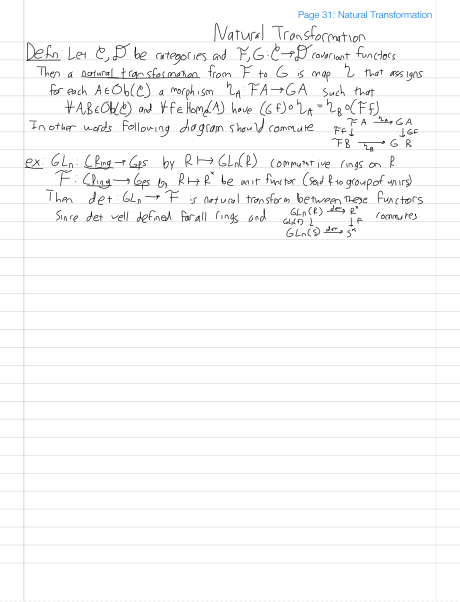 Page 31: Natural Transformation
Natural Transformation
Defn: Let C, D be categories and F, G: C → D covariant functors
Then a natural transformation from F to G is map η that assigns
for each A ∈ Ob(C) a morphism η_A: FA → GA such that
∀A,B ∈ Ob(C) and ∀f ∈ Hom_C(A) have (Gf)∘η_A = η_B∘(Ff)
In other words following diagram should commute
FA η_A→ GA
Ff↓ ↓Gf
FB η_B→ G R
ex: GLn: CRing → Gps by R ↦ GLn(R) commutative rings on R
F: CRing → Gps by R ↦ R^x be unit functor (send R to group of units)
Then det: GLn → F is natural transform between these functors
Since det well defined for all rings and commutes
GLn(R) det→ R^x
GLn(f) ↓ ↓ F
GLn(S) det→ S^x